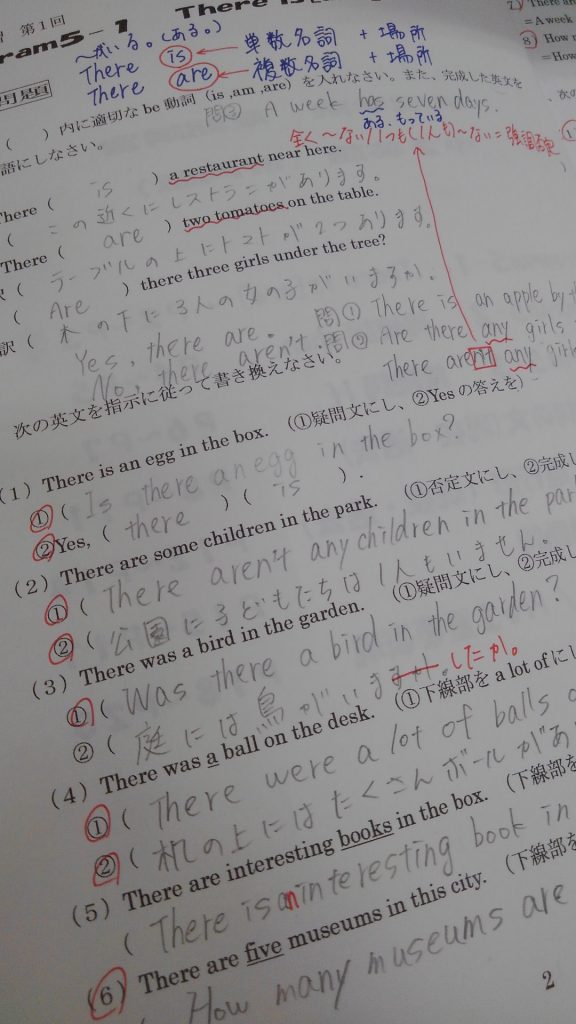 第1回
ram5-1 There is
〜がいる。(ある。)
There is ← 単数名詞 + 場所
There are ← 複数名詞 + 場所
( )内に適切な be 動詞 (is ,am ,are) を入れなさい。また、完成した英文を
語にしなさい。
問③ A week has seven days.
ある、もっている
全く〜ない/1つも(1人も)〜ない=強調表現
There ( is ) a restaurant near here.
( この近くにレストランがあります。
There ( are ) two tomatoes on the table.
訳 ( テーブルの上にトマトが2つあります。
( Are ) there three girls under the tree?
訳 ( 木の下に3人の女の子がいますか.
Yes, there are.
No, there aren't.
問① There is an apple by th
問② Are there any girls
There aren't any girls
次の英文を指示に従って書き換えなさい。
(1) There is an egg in the box. (①疑問文にし、②Yesの答えを)
① ( Is there an egg in the box?
②Yes, ( there ) ( is ).
(2) There are some children in the park. (①否定文にし、②完成し
① ( There aren't any children in the par
② ( 公園に子どもたちは1人もいません。
(3) There was a bird in the garden. (①疑問文にし、②完成し
① ( Was there a bird in the garden?
② ( 庭には鳥がいますか。したか。
(4) There was a ball on the desk. (①下線部を a lot of にし
① ( There were a lot of balls o
② ( 机の上にはたくさんボールがあ
(5) There are interesting books in the box. (下線部を
( There is an interesting book in
(6) There are five museums in this city. (下線部を
( How many museums are
2
7) There are
= A week
8) How m
= How